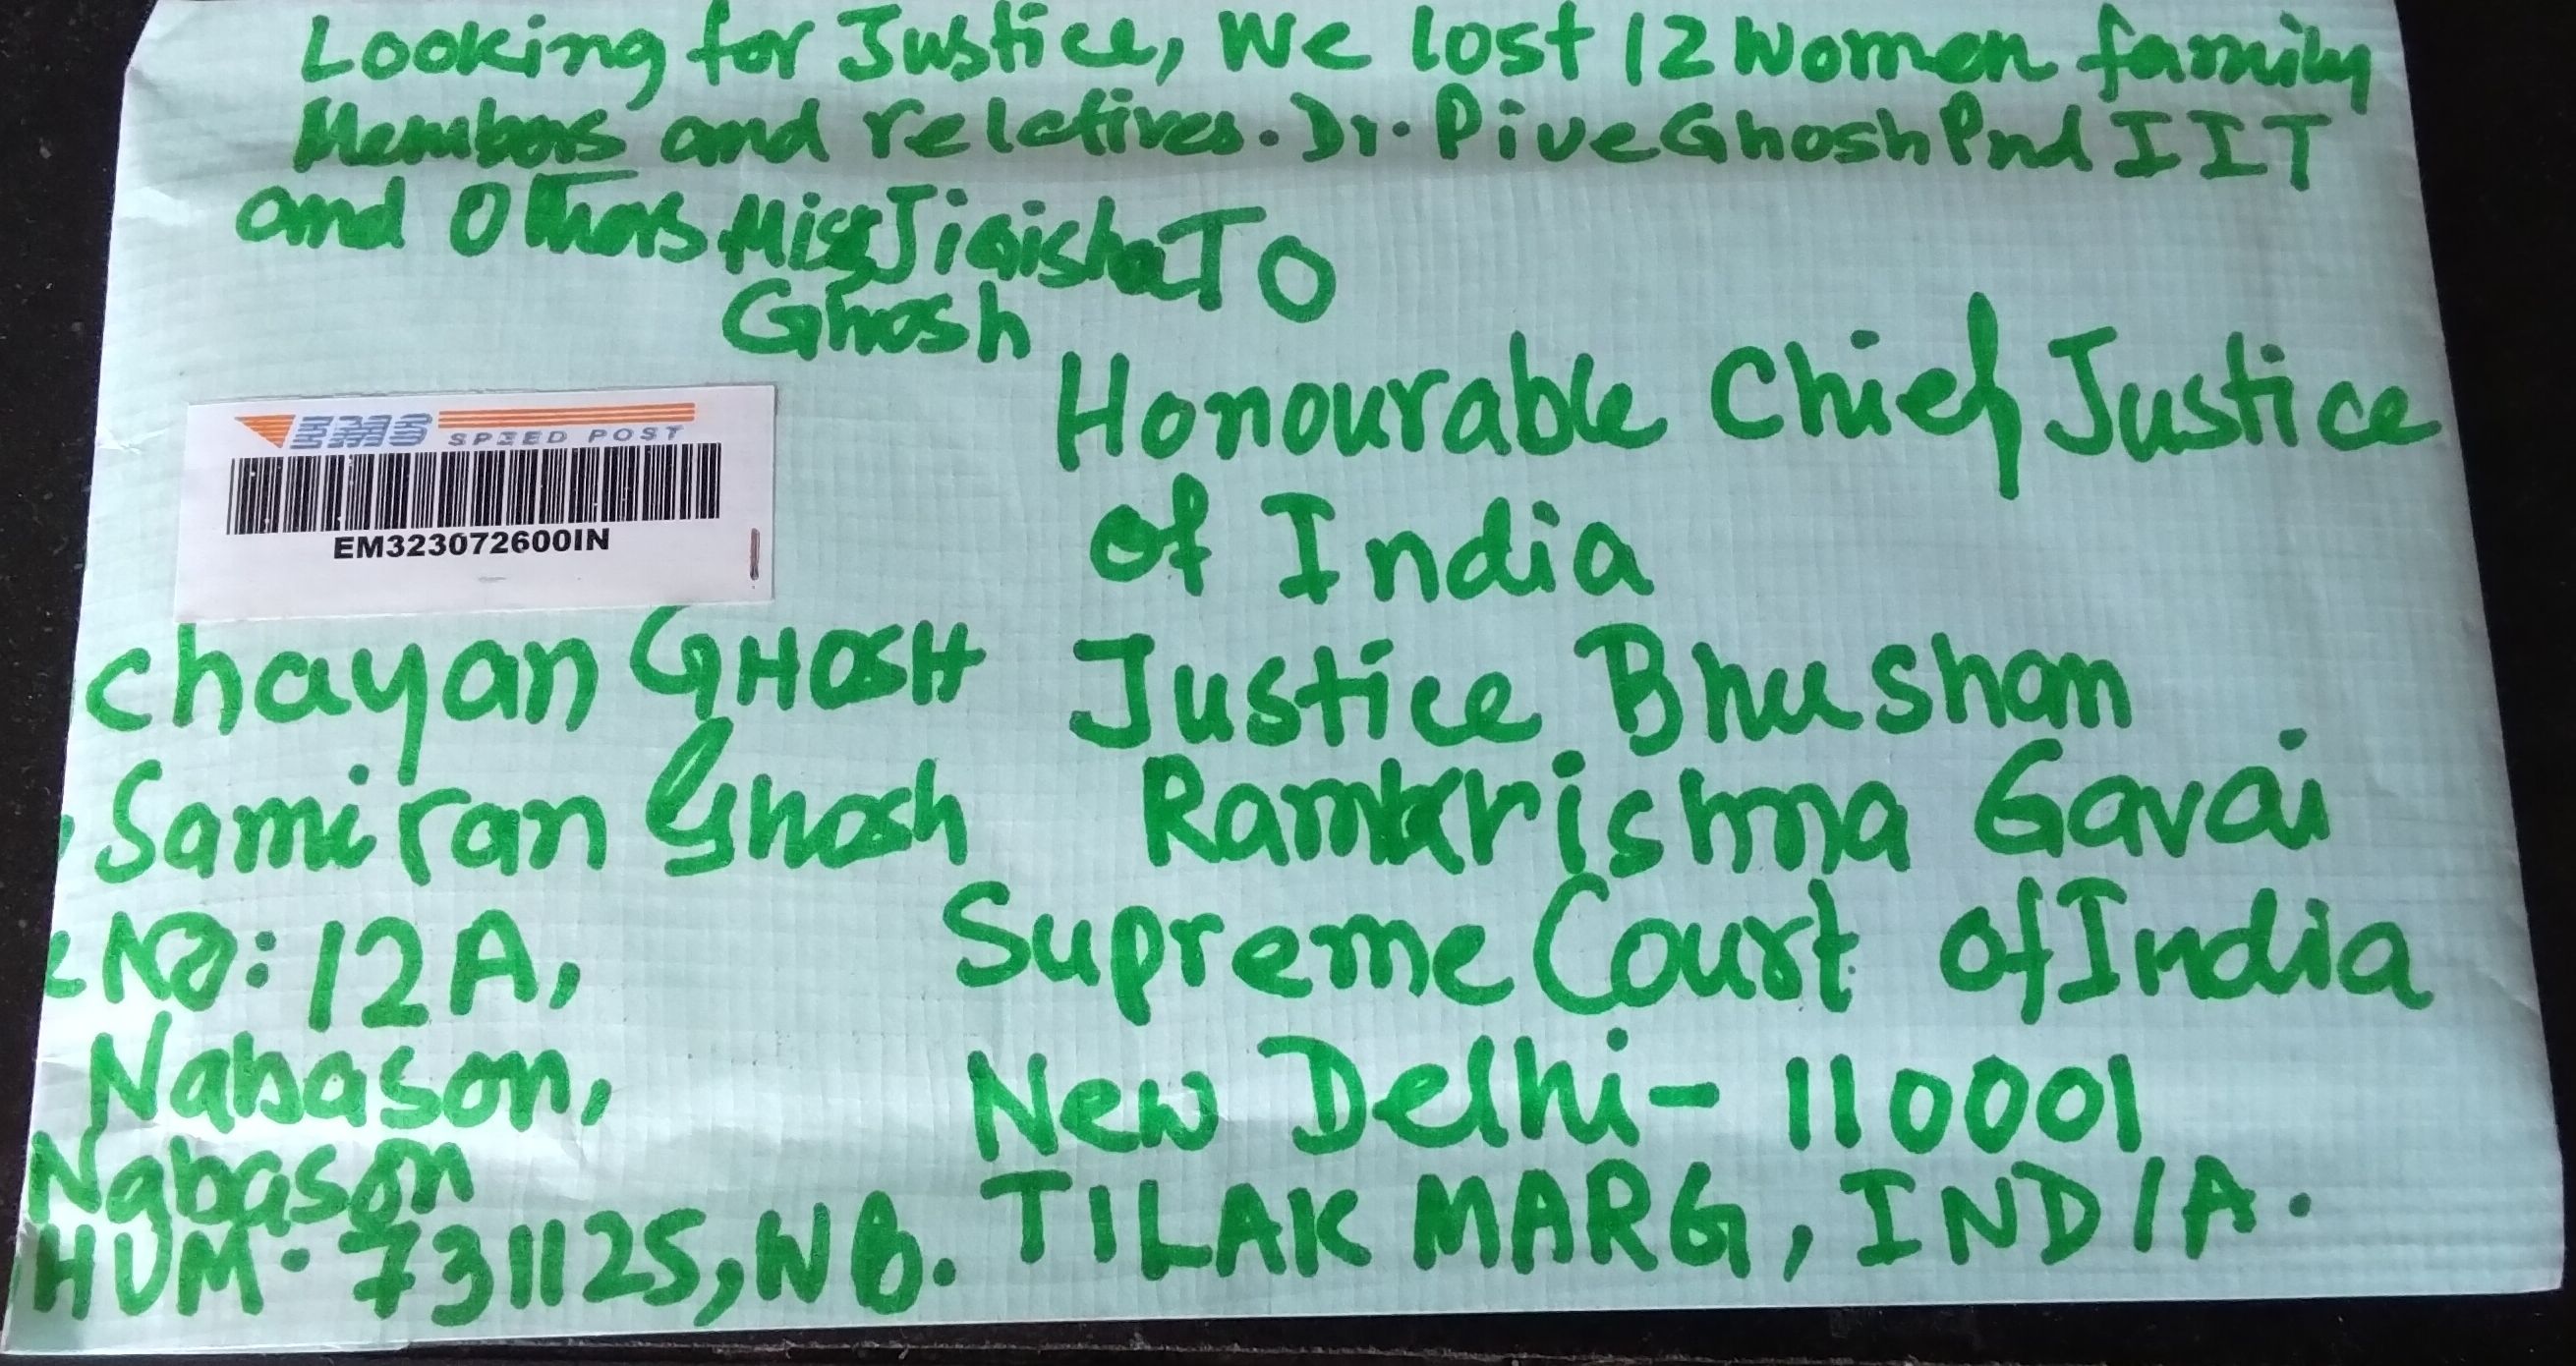 Looking for Justice, We lost 12 Women family
Members and relatives. Dr. Pive Ghosh Pnd IIT
and Others Miss Jigisha
Ghosh
TO
EMS SPEED POST
EM323072600IN
Honourable Chief Justice
of India
Justice Bhushan
Ramkrishna Gavai
Supreme Court of India
New Delhi - 110001
TILAK MARG, INDIA.
Chayan GHOSH
Samiran Ghosh
No: 12A,
Nabason,
Nabason
HUM. 731125, WB.